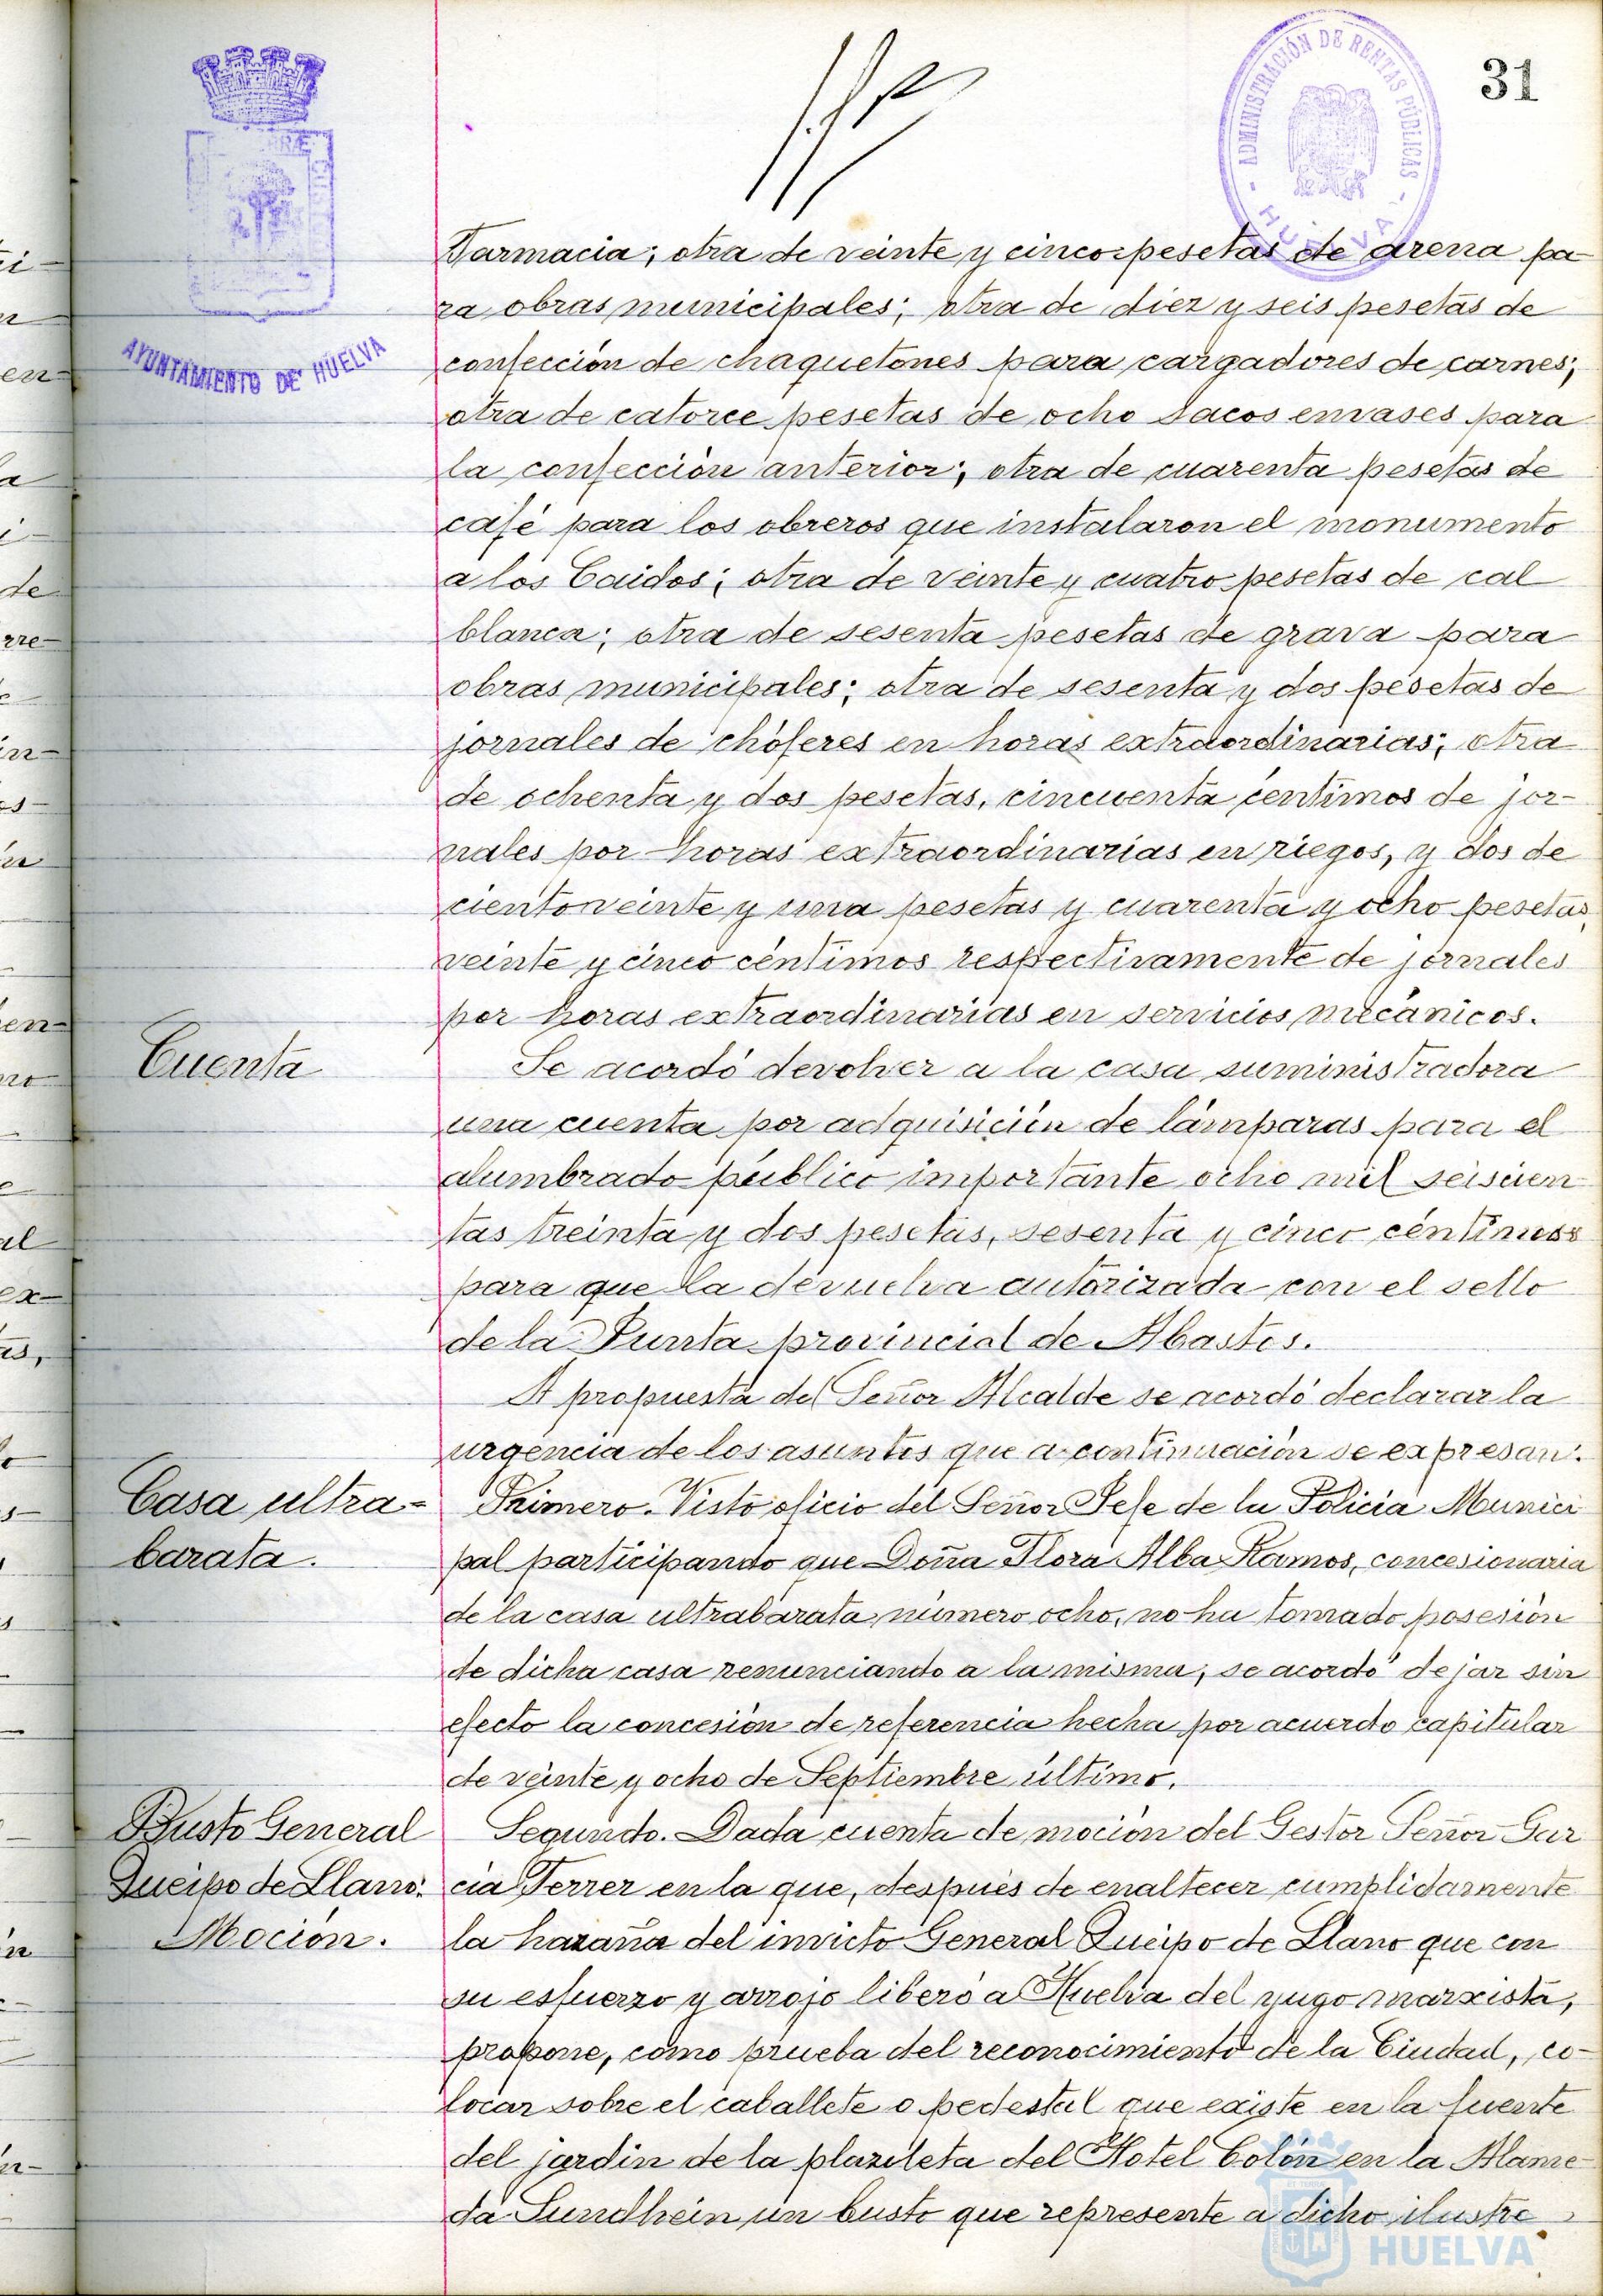 31
ADMINISTRACIÓN DE RENTAS PÚBLICAS
- HUELVA -
AYUNTAMIENTO DE HUELVA
Farmacia; otra de veinte y cinco pesetas de arena pa-
ra obras municipales; otra de diez y seis pesetas de
confección de chaquetones para cargadores de carnes;
otra de catorce pesetas de ocho sacos envases para
la confección anterior; otra de cuarenta pesetas de
café para los obreros que instalaron el monumento
a los Caidos; otra de veinte y cuatro pesetas de cal
blanca; otra de sesenta pesetas de grava para
obras municipales; otra de sesenta y dos pesetas de
jornales de chóferes en horas extraordinarias; otra
de ochenta y dos pesetas, cincuenta céntimos de jor-
nales por horas extraordinarias en riegos, y dos de
ciento veinte y una pesetas y cuarenta y ocho pesetas,
veinte y cinco céntimos respectivamente de jornales
por horas extraordinarias en servicios mecánicos.
Cuenta
Se acordó devolver a la casa suministradora
una cuenta por adquisición de lámparas para el
alumbrado público importante ocho mil seiscien
tas treinta y dos pesetas, sesenta y cinco céntimos
para que la devuelva autorizada con el sello
de la Junta provincial de Abastos.
A propuesta del Señor Alcalde se acordó declarar la
urgencia de los asuntos que a continuación se expresan:
Casa ultra-
barata.
Primero. Visto oficio del Señor Jefe de la Policia Munici
pal participando que Doña Flora Alba Ramos, concesionaria
de la casa ultrabarata número ocho, no ha tomado posesión
de dicha casa renunciando a la misma, se acordó dejar sin
efecto la concesión de referencia hecha por acuerdo capitular
de veinte y ocho de Septiembre último.
Busto General
Queipo de Llano.
Moción.
Segundo. Dada cuenta de moción del Gestor Señor Gar
cia Ferrer en la que, después de enaltecer cumplidamente
la hazaña del invicto General Queipo de Llano que con
su esfuerzo y arrojo liberó a Huelva del yugo marxista,
propone, como prueba del reconocimiento de la Ciudad, co-
locar sobre el caballete o pedestal que existe en la fuente
del jardin de la plazileta del Hotel Colón en la Alame-
da Sundhein un busto que represente a dicho ilustre
HUELVA